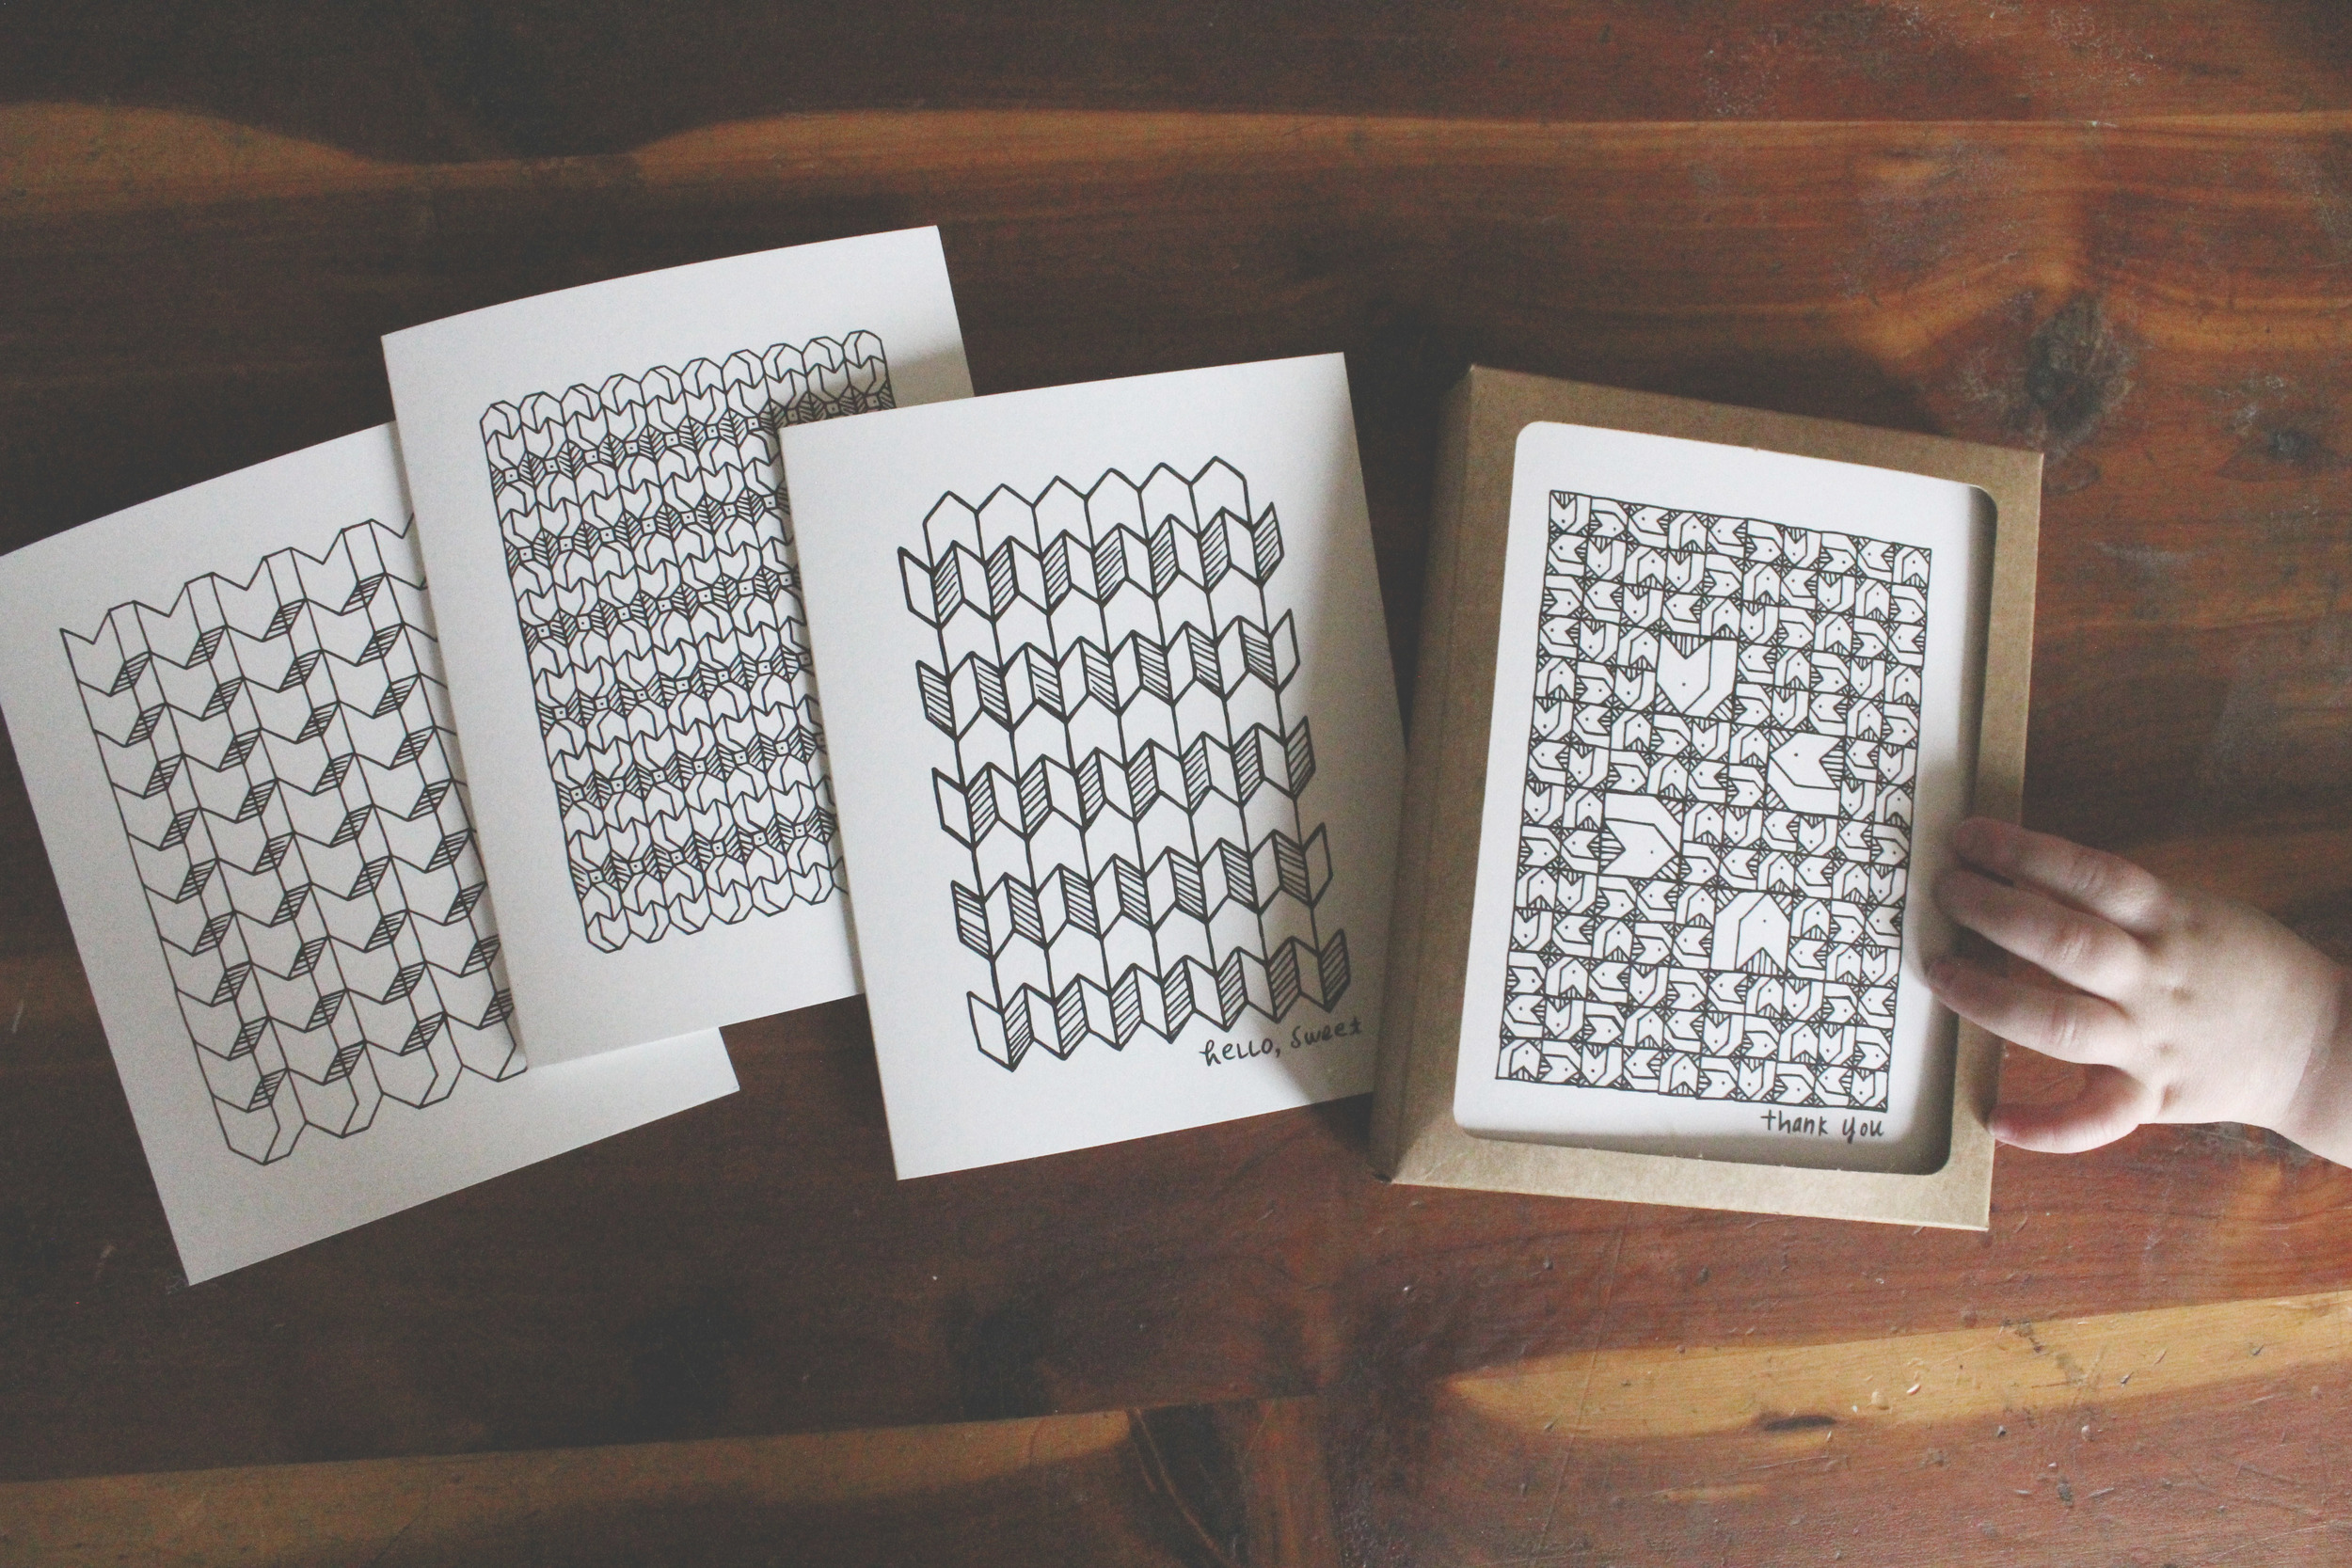 hello, sweet
thank you